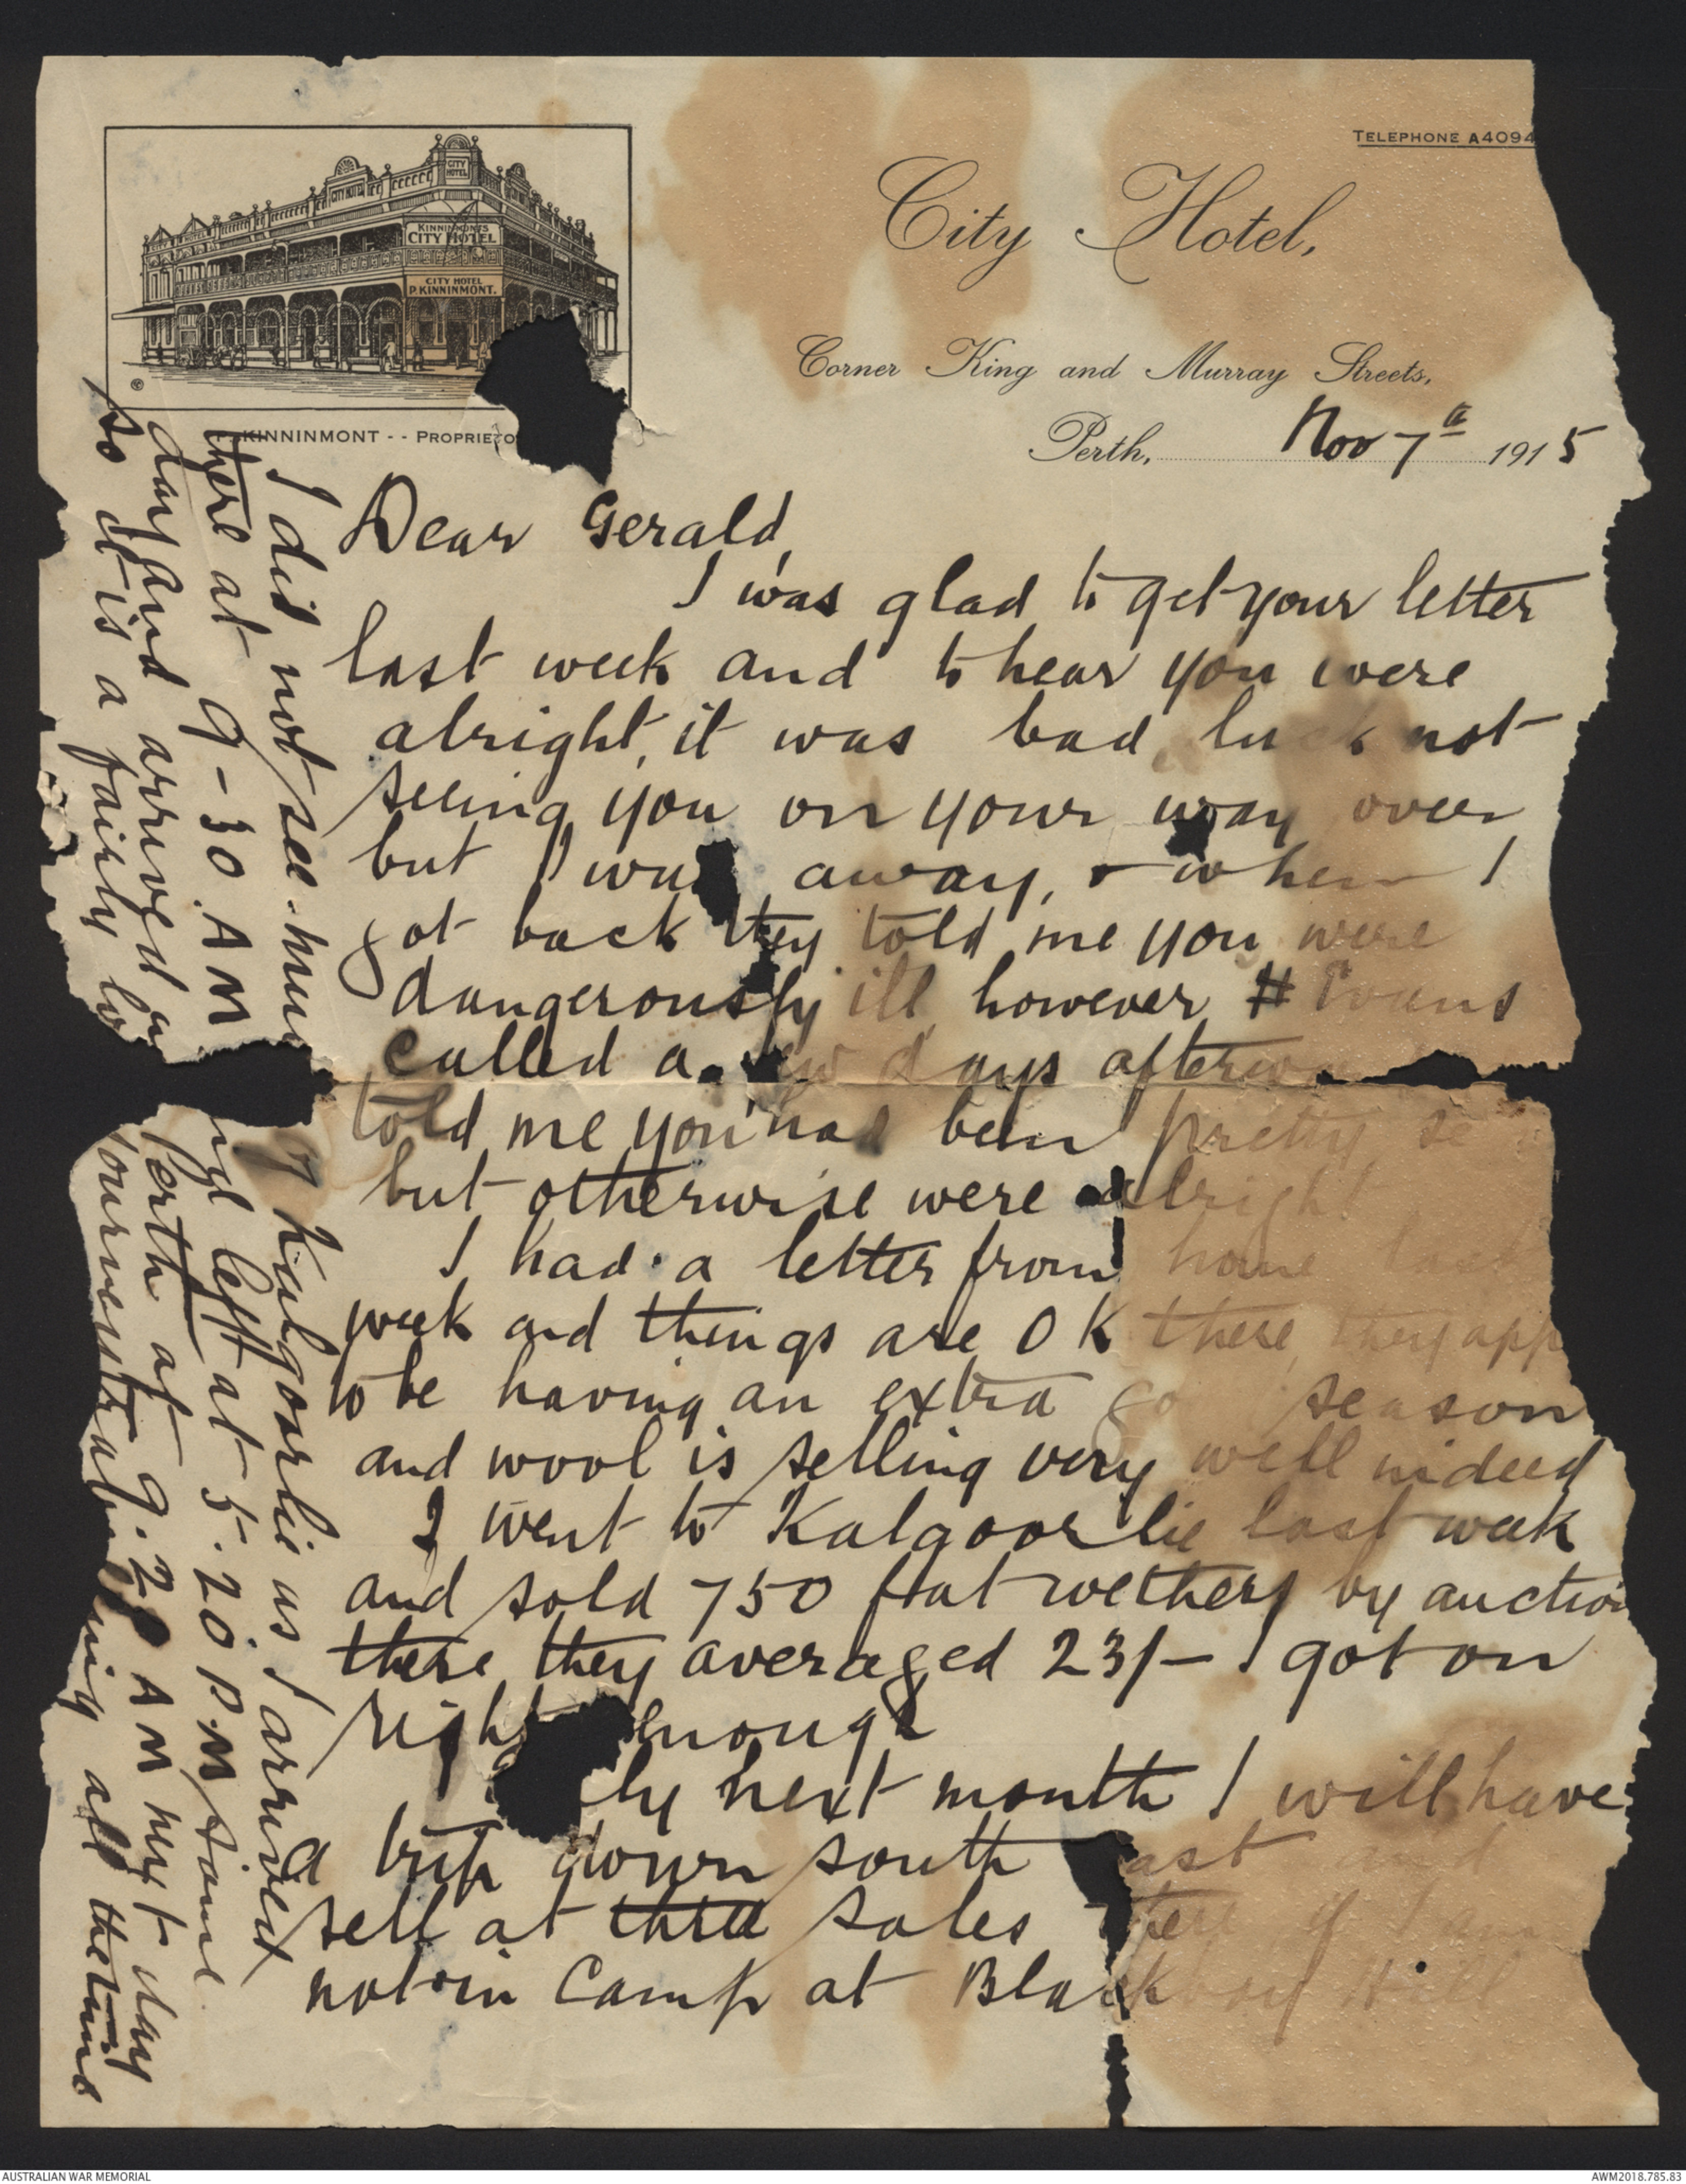 TELEPHONE A4094
City Hotel,
CITY HOTEL
CITY HOTEL
KINNINMONTS
CITY HOTEL
CITY HOTEL
P. KINNINMONT.
Corner King and Murray Streets,
KINNINMONT - - PROPRIETO
Perth, Nov 7th 1915
Dear Gerald,
I was glad to get your letter
last week and to hear you were
alright, it was bad luck not
seeing you on your way over
but I was away, & when I
got back they told me you were
dangerously ill however H Evans
called a few days afterwa
told me you had been pretty
but otherwise were alright
I had a letter from home last
week and things are OK there, they app
to be having an extra go season
and wool is selling very well indeed
I went to Kalgoorlie last week
and sold 750 fat wethers by auction
there they averaged 23/- I got on
right enough
ly next month I will have
a trip down south east and
sell at three sales there if I am
not in Camp at Blackboy Hill
I did not see him Kalgoorlie as I arrived
there at 9-30 AM nd left at 5.20 P.M same
day and arrived Perth at 9.28 AM next day
so it is a fairly lo journey all the time